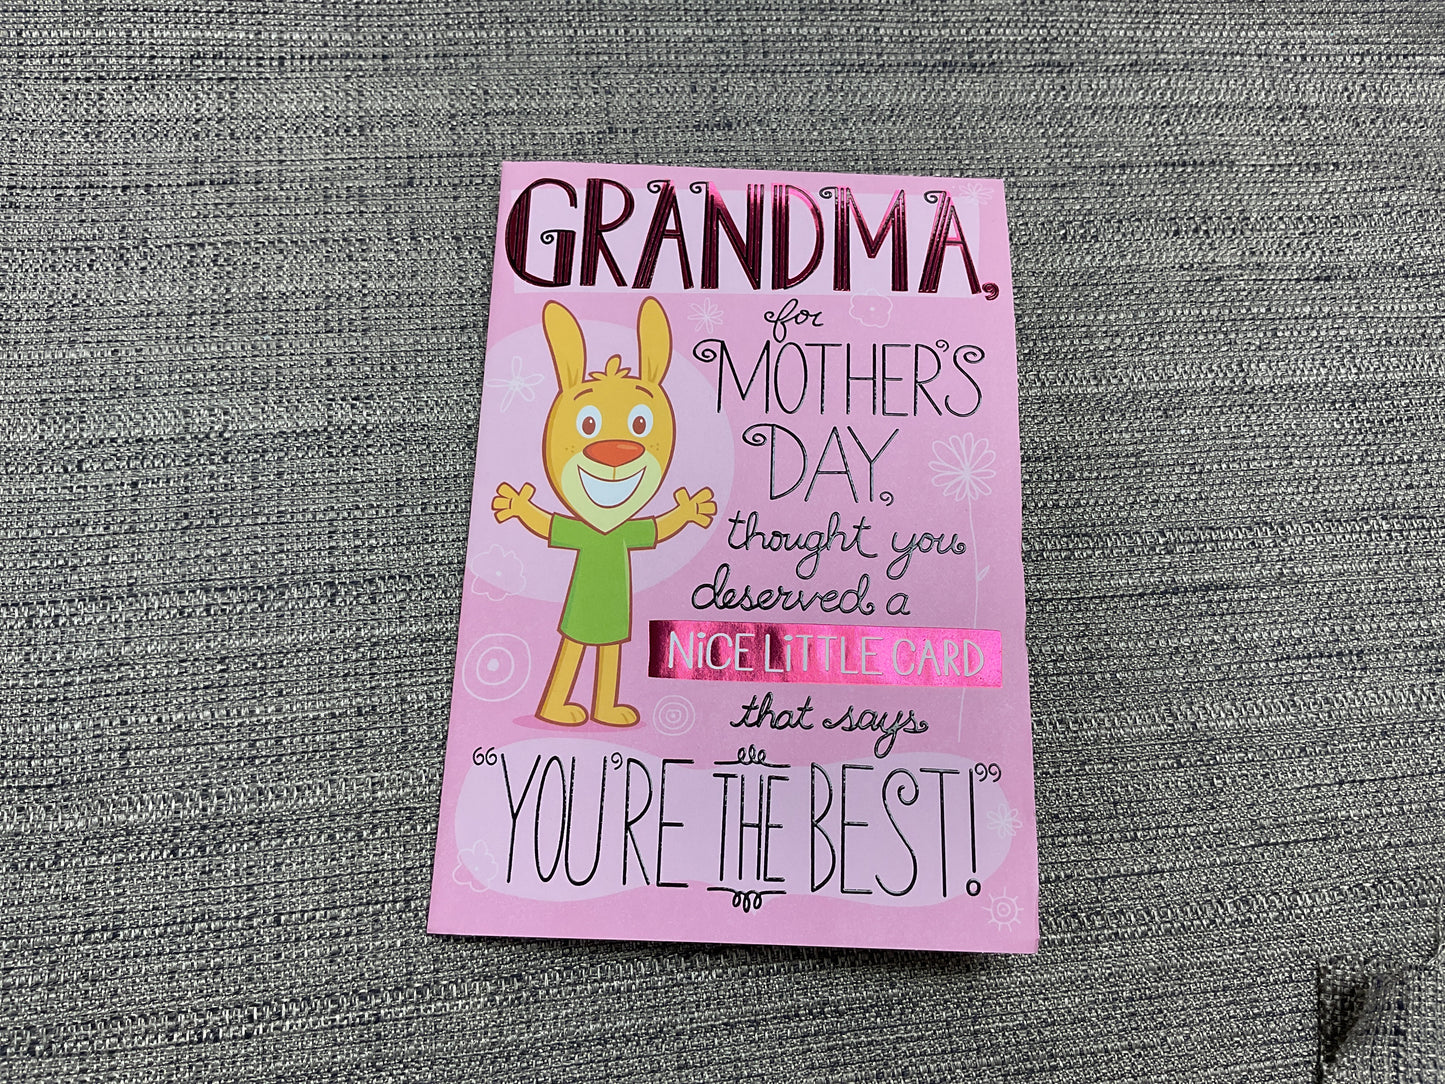 GRANDMA,
for
MOTHER'S
DAY,
thought you
deserved a
NiCE LiTTLE CARD
that says
"YOU'RE THE BEST!"